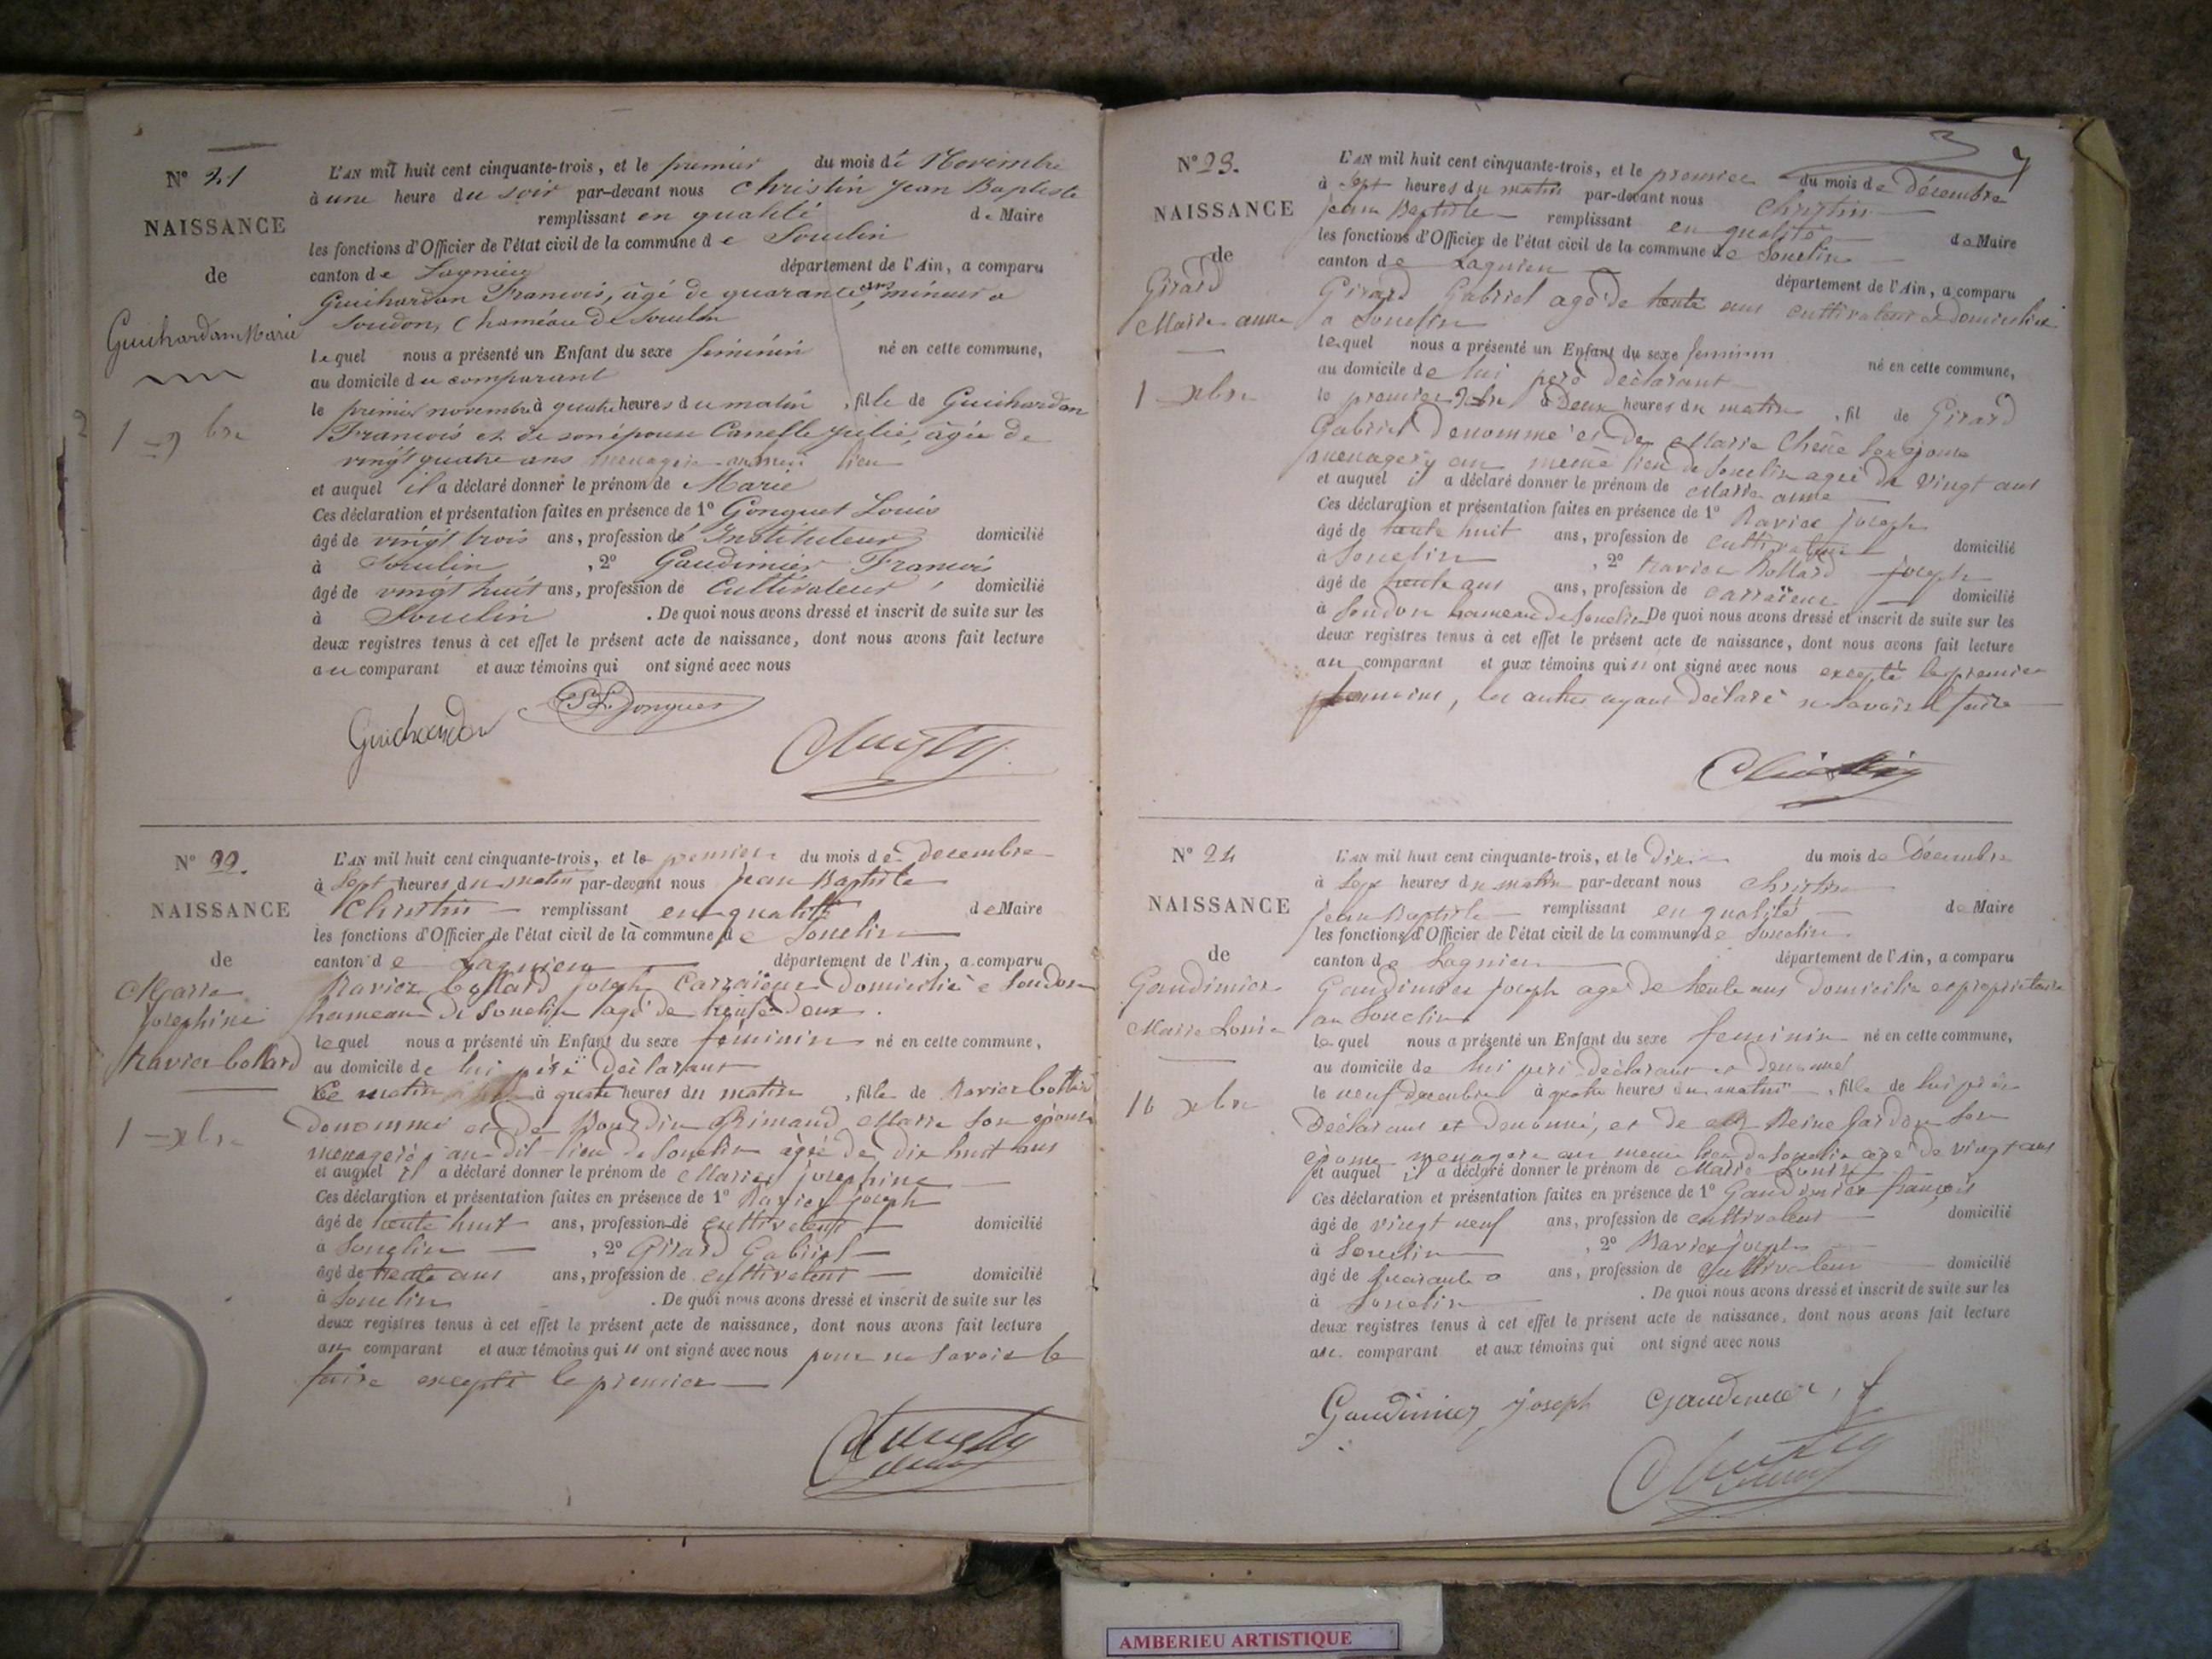 N° 21
NAISSANCE
de
Guichardan Marie
1 - 9bre
L'AN mil huit cent cinquante-trois, et le premier du mois de Novembre
à une heure du soir par-devant nous Christin Jean Baptiste
remplissant en qualité de Maire
les fonctions d'Officier de l'état civil de la commune de Souclin
canton de Lagnieu département de l'Ain, a comparu
Guichardon François, âgé de quarante ans, mineur a
Soudon, (hameau de Souclin
lequel nous a présenté un Enfant du sexe féminin né en cette commune,
au domicile du comparant
le premier novembre à quatre heures du matin, fille de Guichardon
François et de son épouse Canelle Julie, âgée de
vingt quatre ans menagère au lieu
et auquel il a déclaré donner le prénom de Marie
Ces déclaration et présentation faites en présence de 1° Gonguet Louis
âgé de vingt trois ans, profession de Instituteur domicilié
à Souclin, 2° Gaudimier François
âgé de vingt huit ans, profession de Cultivateur, domicilié
à Souclin. De quoi nous avons dressé et inscrit de suite sur les
deux registres tenus à cet effet le présent acte de naissance, dont nous avons fait lecture
au comparant et aux témoins qui ont signé avec nous
Guichardon Gonguet
Christin
N° 22.
NAISSANCE
de
Marie
Josephine
Ravier Collard
1 - xbre
L'AN mil huit cent cinquante-trois, et le premier du mois de decembre
à Sept heures du matin par-devant nous Jean Baptiste
Christin remplissant en qualité de Maire
les fonctions d'Officier de l'état civil de la commune de Souclin
canton de Lagnieu département de l'Ain, a comparu
Ravier Collard Joseph Carraieur domicilié a Soudon
hameau de Souclin agé de trente deux.
lequel nous a présenté un Enfant du sexe féminin né en cette commune,
au domicile de lui père déclarant
Ce matin à quatre heures du matin, fille de Ravier Collard
denommé et de Bourdin Rimaud Marie son épouse
menagère au dit lieu de Souclin âgée de dix huit ans
et auquel il a déclaré donner le prénom de Marie Josephine
Ces déclaration et présentation faites en présence de 1° Ravier Joseph
âgé de trente huit ans, profession de cultivateur domicilié
à Souclin, 2° Girard Gabriel
âgé de trente ans ans, profession de cultivateur domicilié
à Souclin. De quoi nous avons dressé et inscrit de suite sur les
deux registres tenus à cet effet le présent acte de naissance, dont nous avons fait lecture
au comparant et aux témoins qui n ont signé avec nous pour ne savoir le
faire excepté le premier
Christin
7
N° 23.
NAISSANCE
de
Girard
Marie anne
1 xbre
L'AN mil huit cent cinquante-trois, et le premier du mois de décembre
à Sept heures du matin par-devant nous Christin
Jean Baptiste remplissant en qualité de Maire
les fonctions d'Officier de l'état civil de la commune de Souclin
canton de Lagnieu département de l'Ain, a comparu
Girard Gabriel agé de trente ans cultivateur domicilié
a Souclin
lequel nous a présenté un Enfant du sexe feminin né en cette commune,
au domicile de lui père déclarant
le premier Xbre à Deux heures du matin, fil de Girard
Gabriel Denommé et de Marie Chêne son épouse
menagère au même lieu de Souclin agée de vingt ans
et auquel il a déclaré donner le prénom de Marie anne
Ces déclaration et présentation faites en présence de 1° Ravier Joseph
âgé de trente huit ans, profession de cultivateur domicilié
à Souclin, 2° Ravier Collard Joseph
âgé de trente ans ans, profession de carraieur domicilié
à Soudon hameau de Souclin De quoi nous avons dressé et inscrit de suite sur les
deux registres tenus à cet effet le présent acte de naissance, dont nous avons fait lecture
au comparant et aux témoins qui n ont signé avec nous excepté le premier
temoins, les autres ayant déclaré ne savoir le faire
Christin
N° 24
NAISSANCE
de
Gaudimier
Marie Louise
10 xbre
L'AN mil huit cent cinquante-trois, et le dix du mois de Décembre
à Sept heures du matin par-devant nous Christin
Jean Baptiste remplissant en qualité de Maire
les fonctions d'Officier de l'état civil de la commune de Souclin
canton de Lagnieu département de l'Ain, a comparu
Gaudimier Joseph agé de trente ans domicilié et propriétaire
au Souclin
lequel nous a présenté un Enfant du sexe feminin né en cette commune,
au domicile de lui père déclarant et denommé
le neuf décembre à quatre heures du matin, fille de lui père
Déclarant et denommé, et de Reine Jardon son
épouse menagère au meme lieu de Souclin agé de vingt ans
et auquel il a déclaré donner le prénom de Marie Louise
Ces déclaration et présentation faites en présence de 1° Gaudimier françois
âgé de vingt neuf ans, profession de cultivateur domicilié
à Souclin, 2° Ravier Joseph
âgé de quarante ans, profession de cultivateur domicilié
à Souclin. De quoi nous avons dressé et inscrit de suite sur les
deux registres tenus à cet effet le présent acte de naissance, dont nous avons fait lecture
au comparant et aux témoins qui ont signé avec nous
Gaudimier Joseph Gaudimier, f
Christin
AMBERIEU ARTISTIQUE